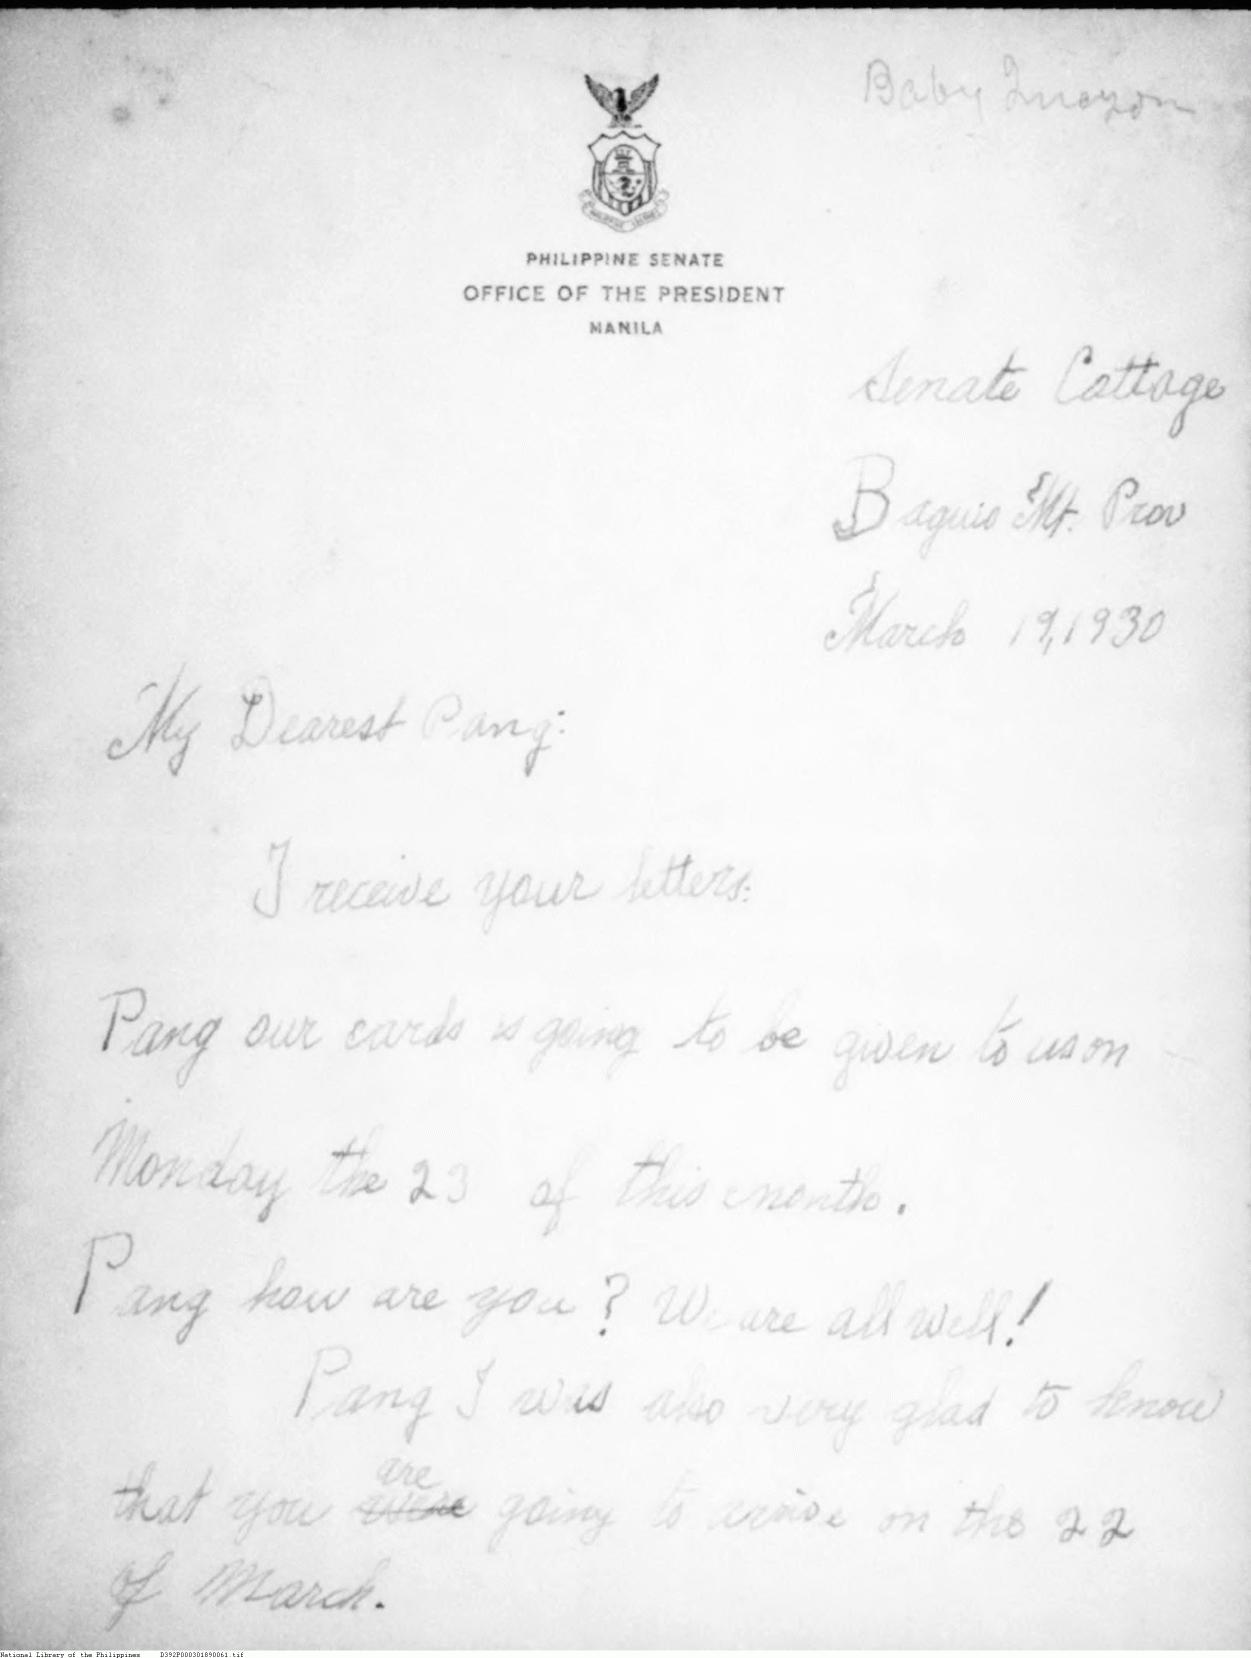 Baby Quezon
PHILIPPINE SENATE
OFFICE OF THE PRESIDENT
MANILA
Senate Cottage
Baguio Mt. Prov
March 19, 1930
My Dearest Pang:
I receive your letters.
Pang our cards is going to be given to us on
Monday the 23 of this month.
Pang how are you? We are all well!
Pang I was also very glad to know
are
that you were going to arrive on the 22
of March.
National Library of the Philippines D392P000301890061.tif